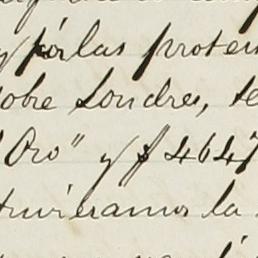 y por las protes
obre Londres, te
"Oro" y $ 4647
tuvieramos la